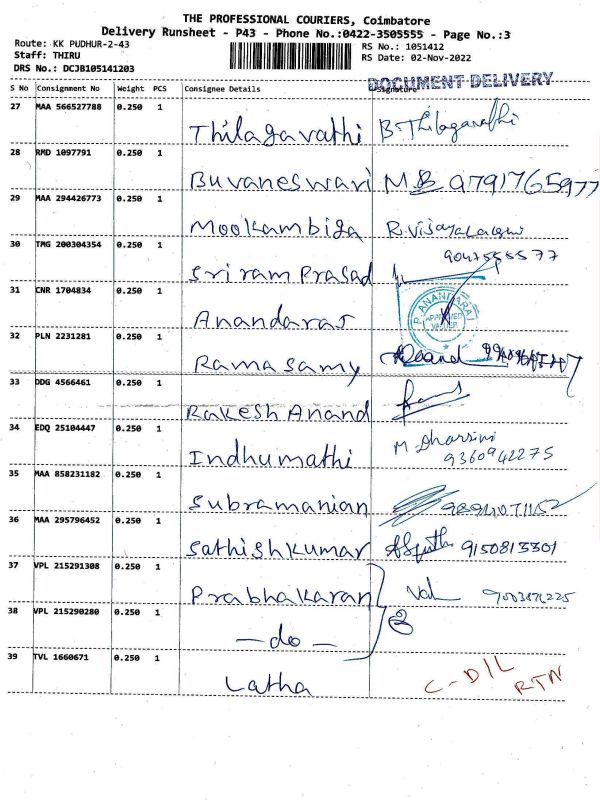 THE PROFESSIONAL COURIERS, Coimbatore
Delivery Runsheet - P43 - Phone No.:0422-3505555 - Page No.:3
Route: KK PUDHUR-2-43
Staff: THIRU
DRS No.: DCJB105141203
RS No.: 1051412
RS Date: 02-Nov-2022
DOCUMENT DELIVERY
S No Consignment No Weight PCS Consignee Details Signature
27 MAA 566527788 0.250 1 Thilagavathi B. Thilagavathi
28 RMD 1097791 0.250 1 Buvaneswari M B 9791765977
29 MAA 294426773 0.250 1 Mookambiga R. Vijayalaxmi
30 TMG 200304354 0.250 1 Sriram Prasad 9047555577
31 CNR 1704834 0.250 1 Anandaraj P. ANANDARAJ APPROVED VALUER
32 PLN 2231281 0.250 1 Ramasamy
33 DDG 4566461 0.250 1 Rakesh Anand
34 EDQ 25104447 0.250 1 Indhumathi M Dharsini
9360942275
35 MAA 858231182 0.250 1 Subramanian 9894071152
36 MAA 295796452 0.250 1 Sathishkumar 9150813301
37 VPL 215291308 0.250 1 Prabhakaran
38 VPL 215290280 0.250 1 — do —
39 TVL 1660671 0.250 1 Latha C-D/L
RTN